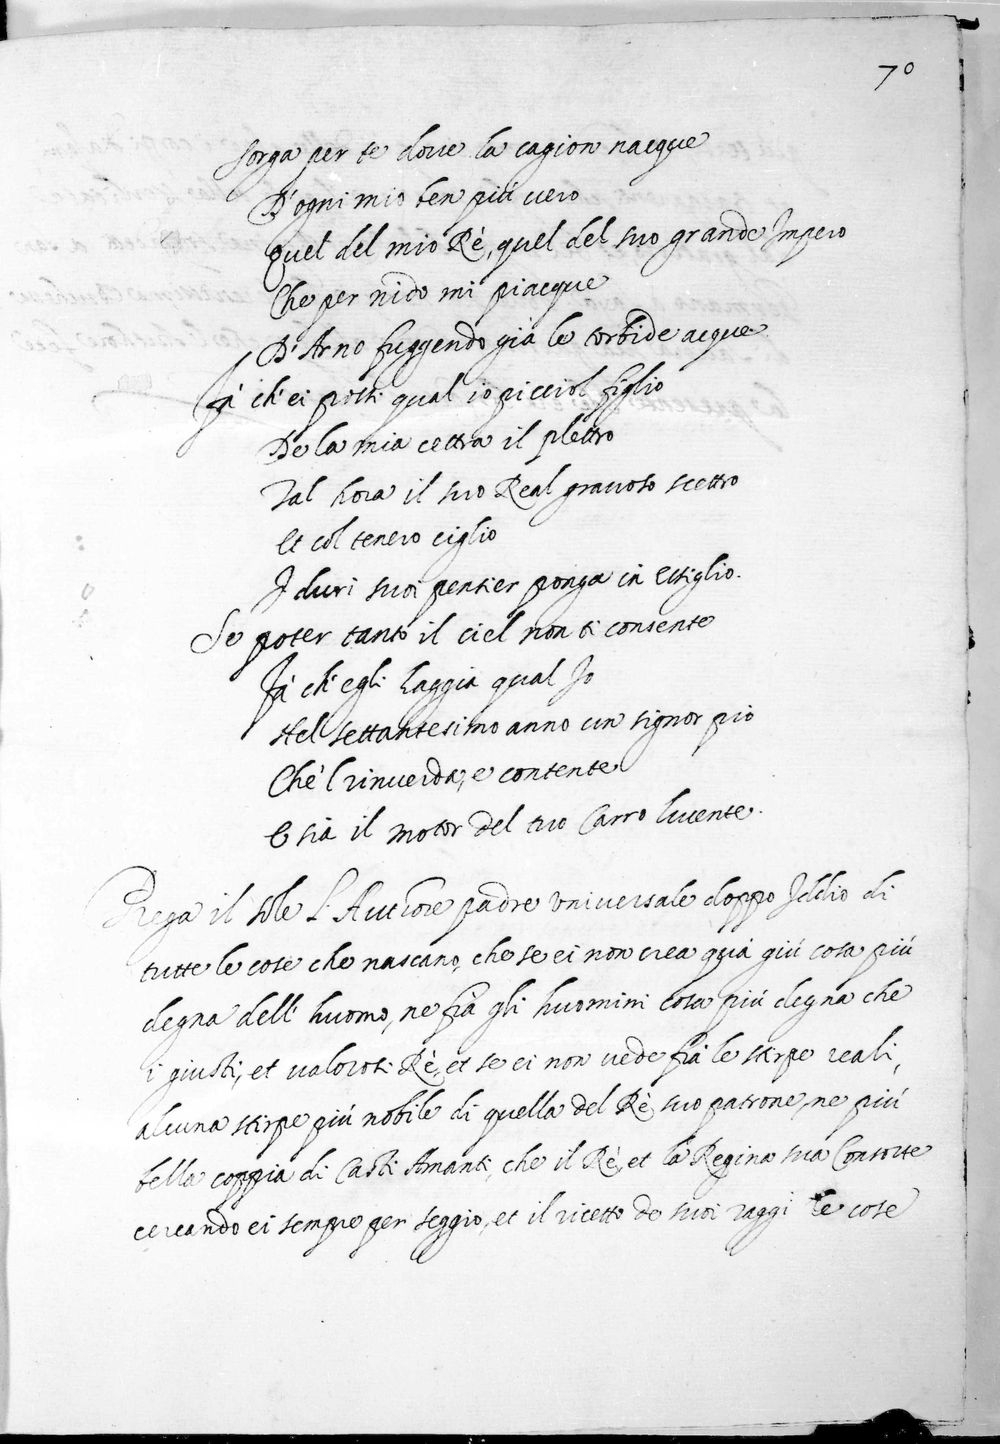 70
Sorga per te dove la cagion nacque
D'ogni mio ben più vero
Quel del mio Rè, quel del suo grande Impero
Che per nido mi piacque
D'Arno fuggendo già le torbide acque
Fà ch'ei tratti qual io picciol figlio
De la mia cettra il plettro
Tal hora il suo Real gravoso scettro
Et col tenero ciglio
I duri suoi pensier ponga in essiglio.
Se poter tanto il ciel non ti consente
Fà ch'egli haggia qual Io
Nel settantesimo anno un signor pio
Che'l rinverda, e contente
E sia il motor del tuo Carro lucente.
Prega il sole l'Authore padre universale doppo Iddio di
tutte le cose che nascano, che se ei non crea quà giù cosa più
degna dell'huomo, ne frà gli huomini cosa più degna che
i giusti, et valorosi Rè, et se ei non vede frà le stirpe reali,
alcuna stirpe più nobile di quella del Rè suo patrone, ne più
bella coppia di Casti Amanti, che il Rè, et la Regina sua Consorte
cercando ei sempre per seggio, et il ricetto de suoi raggi le cose